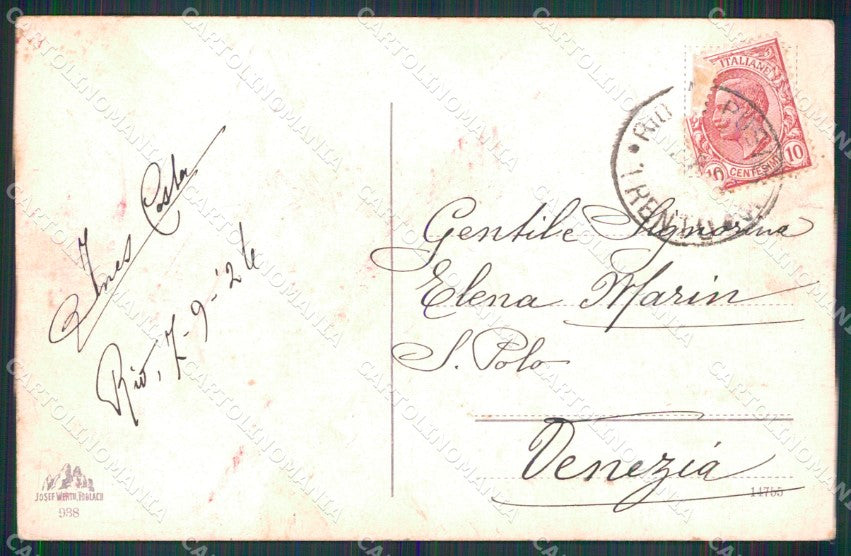 Ines Costa
Rio, 7-9-'24
JOSEF WERTH, TOBLACH
988
ITALIANE
10
10
CENTESIMI
RIO
TRENTO
Gentile Signorina
Elena Marin
S. Polo
Venezia
14755
CARTOLINOMANIA